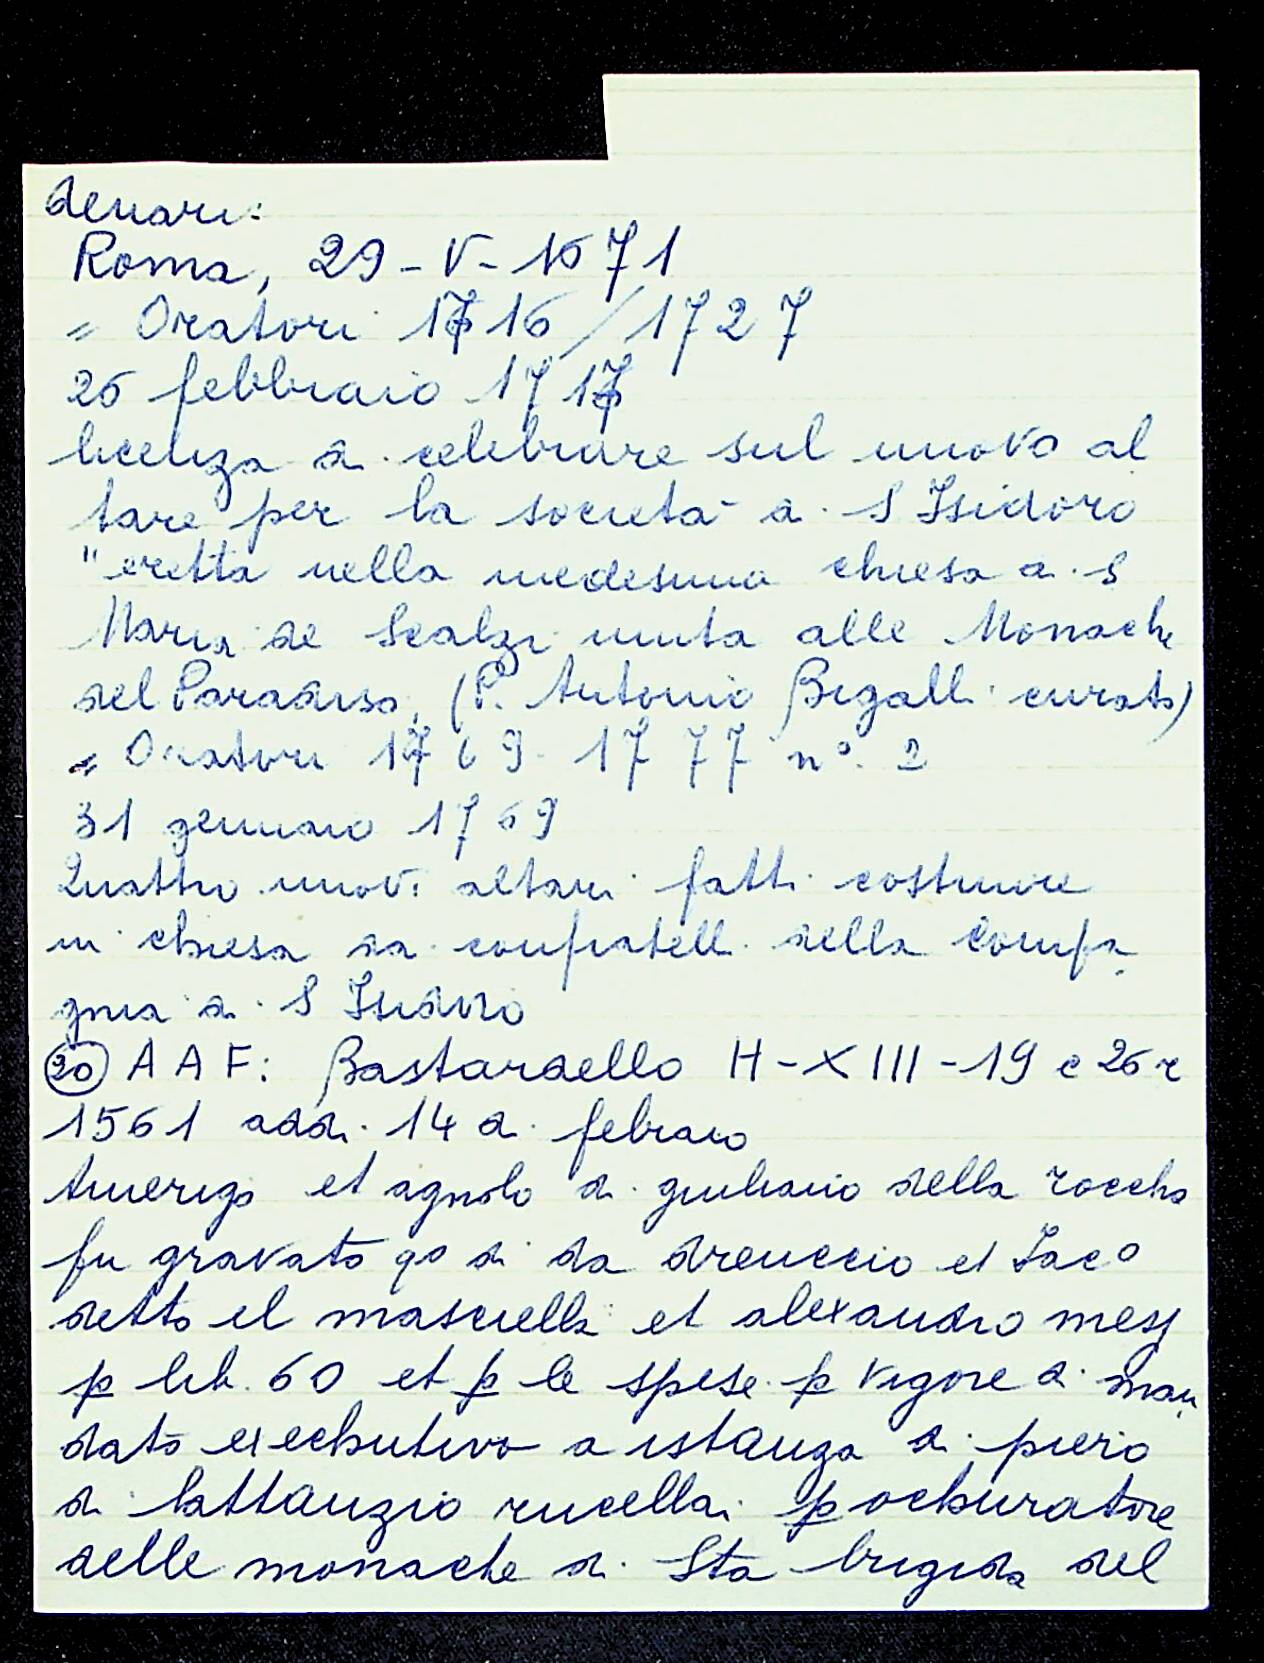 denari:
Roma, 29-V-1671
= Oratori 1716/1727
26 febbraio 1717
licenza di celebrare sul nuovo al
tare per la società di S Isidoro
"eretta nella medesima chiesa di S
Maria de Scalzi unita alle Monache
del Paradiso, (P. Antonio Bigalli curato)
= Oratori 1769-1777 n°. 2
31 gennaio 1769
Quattro nuovi altari fatti costruire
in chiesa da confratelli della Compa
gnia di S Isidoro
(20) A A F: Bastardello H-XIII-19 c 26 r
1561 addi 14 di febraio
Amerigo et agnolo di giuliano della roccha
fu gravato qo di da dreuccio et Iaco
detto el masciella et alexandro mess
p lib. 60 et p le spese p vigore di man
dato exechutivo a istanza di piero
di lattanzio rucellai pochuratore
delle monache di Sta brigida del